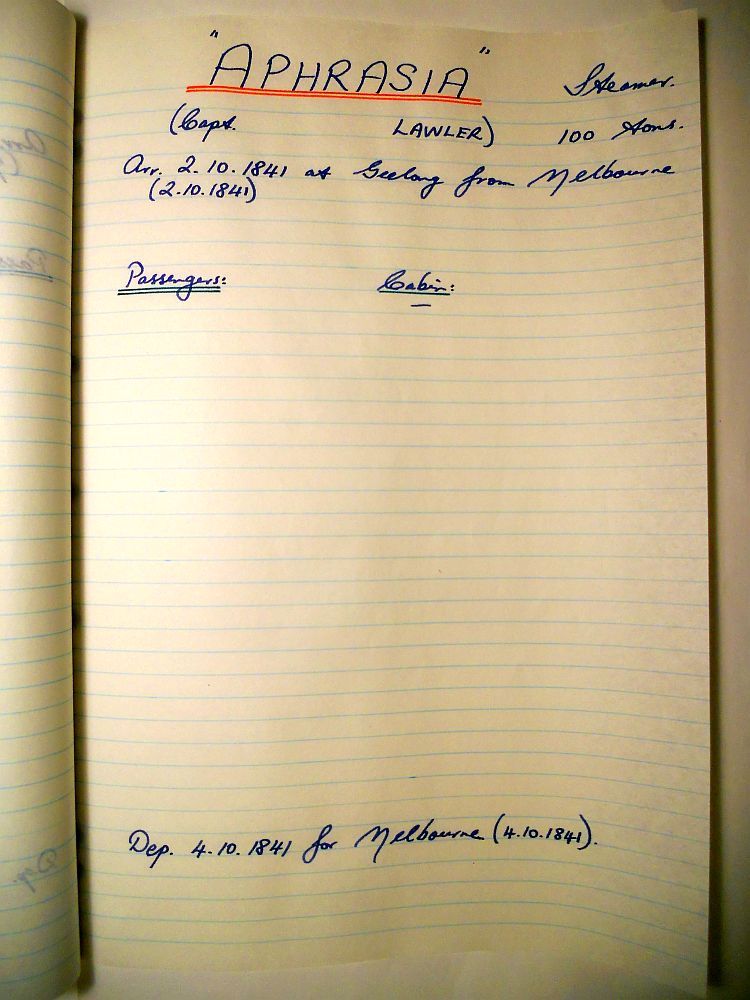 "APHRASIA" Steamer.
(Capt. LAWLER) 100 tons.
Arr. 2.10.1841 at Geelong from Melbourne
(2.10.1841)
Passengers: Cabin:
—
Dep. 4.10.1841 for Melbourne (4.10.1841).